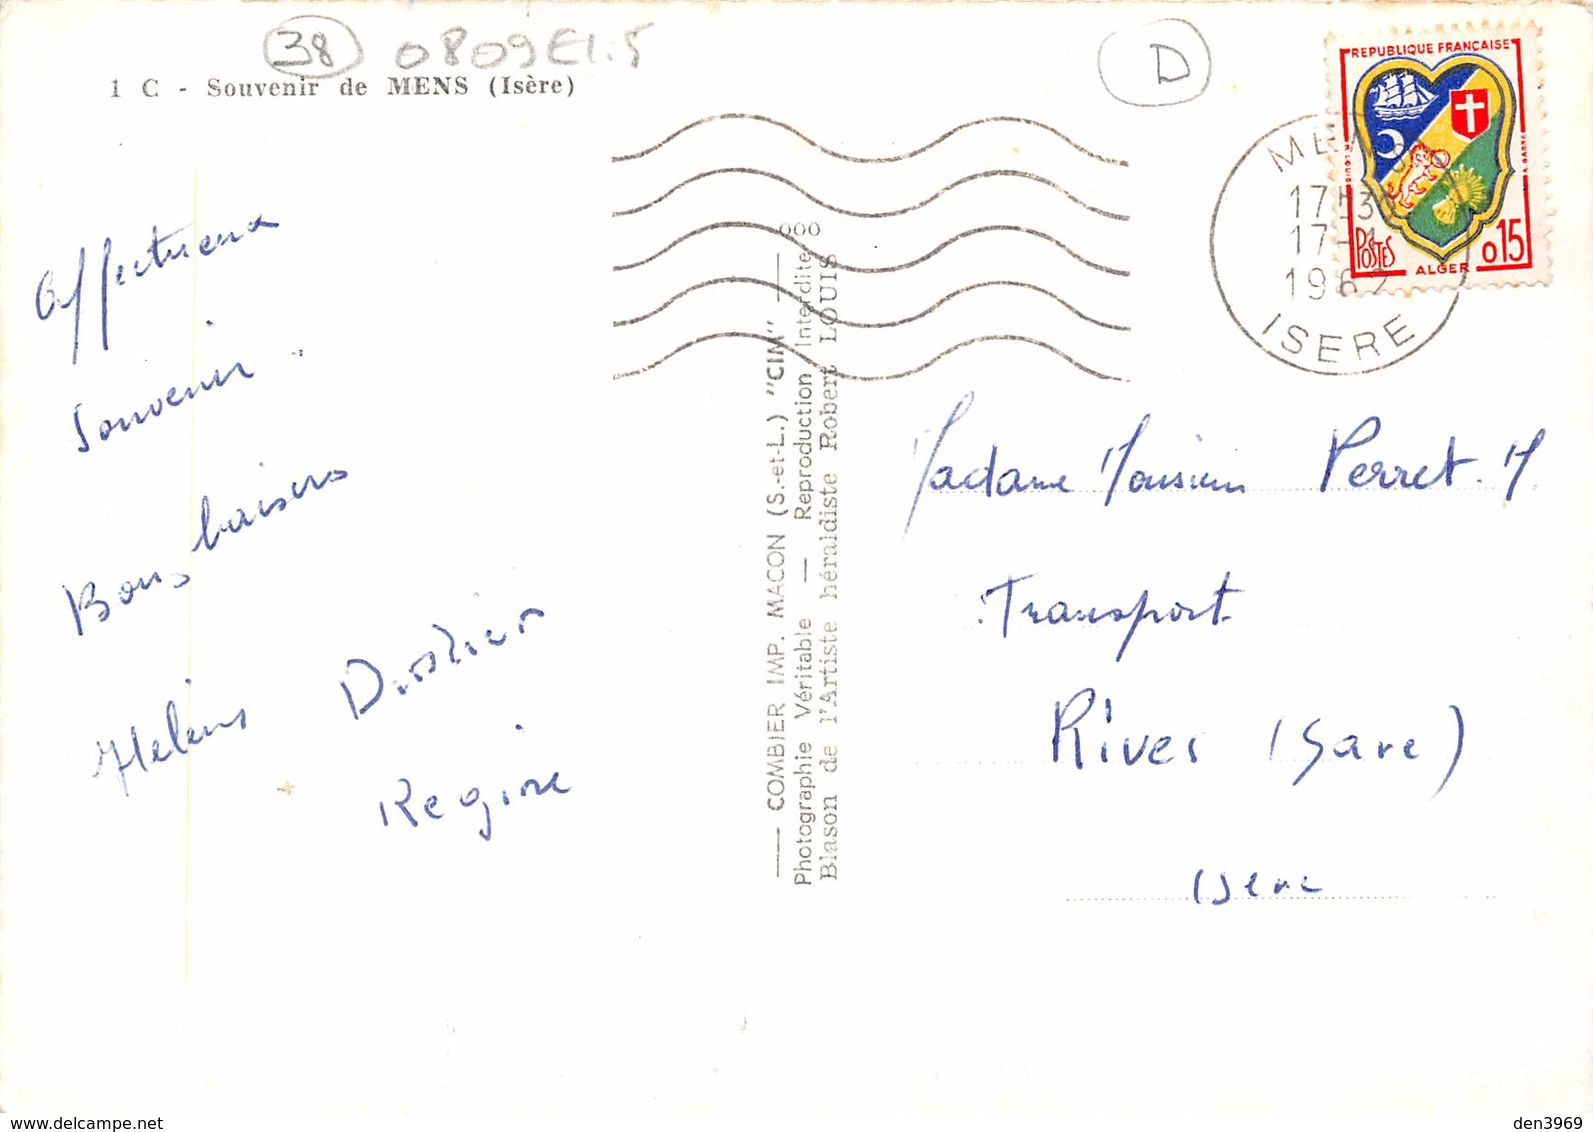 38 0809E1.5
D
1 C - Souvenir de MENS (Isère)
REPUBLIQUE FRANÇAISE
POSTES
0,15
ALGER
17-1
1962
ISERE
Affectueux
Souvenir
Bons baisers
Régine
000
COMBIER IMP. MACON (S.-et-L.) "CIM"
Photographie Véritable — Reproduction Interdite
Blason de l'Artiste héraldiste Robert LOUIS
Madame Monsieur Perret. M
Transport
Rives (Gare)
Isère
den3969